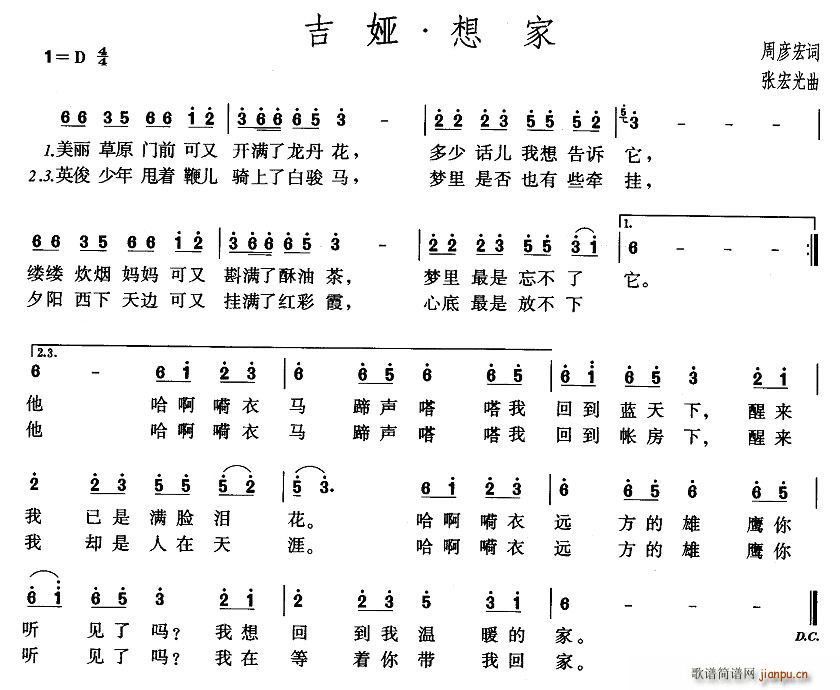 吉娅·想家
1=D 4/4
周彦宏词
张宏光曲
66 35 66 12 | 36665 3 - | 22 25 55 52 | 3 - - - |
1.美丽 草原 门前 可又 开满了龙丹 花， 多少 话儿 我想 告诉 它，
2.3.英俊 少年 甩着 鞭儿 骑上了白骏 马， 梦里 是否 也有 些牵 挂，
66 35 66 12 | 36665 3 - | 22 26 55 31 | 1. 6 - - - :|
缕缕 炊烟 妈妈 可又 斟满了酥油 茶， 梦里 最是 忘不 了 它。
夕阳 西下 天边 可又 挂满了红彩 霞， 心底 最是 放不 下
2.3. 6 - 61 23 | 6 65 6 65 | 61 65 3 21 |
他 哈啊嗬衣 马 蹄声嗒 嗒我 回到 蓝天 下，醒来
他 哈啊嗬衣 马 蹄声嗒 嗒我 回到 帐房 下，醒来
2 23 55 52 | 53. 61 23 | 6 65 6 65 |
我 已是 满脸 泪 花。 哈啊嗬衣 远 方的雄 鹰你
我 却是 人在 天 涯。 哈啊嗬衣 远 方的雄 鹰你
61 65 3 21 | 2 23 5 31 | 6 - - - |
听 见了 吗？我想 回 到我 温 暖的 家。 D.C.
听 见了 吗？我在 等 着你 带 我回 家。
歌谱简谱网 jianpu.cn